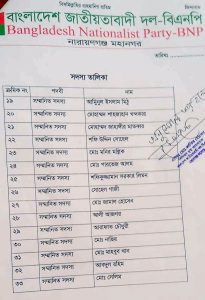 বিসমিল্লাহির রাহমানির রাহিম
বাংলাদেশ জাতীয়তাবাদী দল-বিএনপি
Bangladesh Nationalist Party-BNP
নারায়ণগঞ্জ মহানগর
তারিখঃ
সদস্য তালিকা
ক্রমিক নং পদবী নাম
১৯ সম্মানিত সদস্য আমিনুল ইসলাম মিঠু
২০ সম্মানিত সদস্য মোহাম্মদ শাহজাহান খন্দকার
২১ সম্মানিত সদস্য মোহাম্মদ জাহাঙ্গীর মাতবর
২২ সম্মানিত সদস্য শফি উদ্দিন সোহেল
২৩ সম্মানিত সদস্য মোঃ মনির মল্লিক
২৪ সম্মানিত সদস্য মোঃ পারভেজ আলম
২৫ সম্মানিত সদস্য শফিকুজ্জামান সরকার লিমন
২৬ সম্মানিত সদস্য সোহেল গাজী
২৭ সম্মানিত সদস্য মোঃ জামাল হোসেন
২৮ সম্মানিত সদস্য আলী আজগর
২৯ সম্মানিত সদস্য আরাফাত চৌধুরী
৩০ সম্মানিত সদস্য মোঃ নাহির
৩১ সম্মানিত সদস্য মোঃ মাহবুব খান
৩২ সম্মানিত সদস্য আবদুল রহিম
৩৩ সম্মানিত সদস্য মোঃ সেলিম